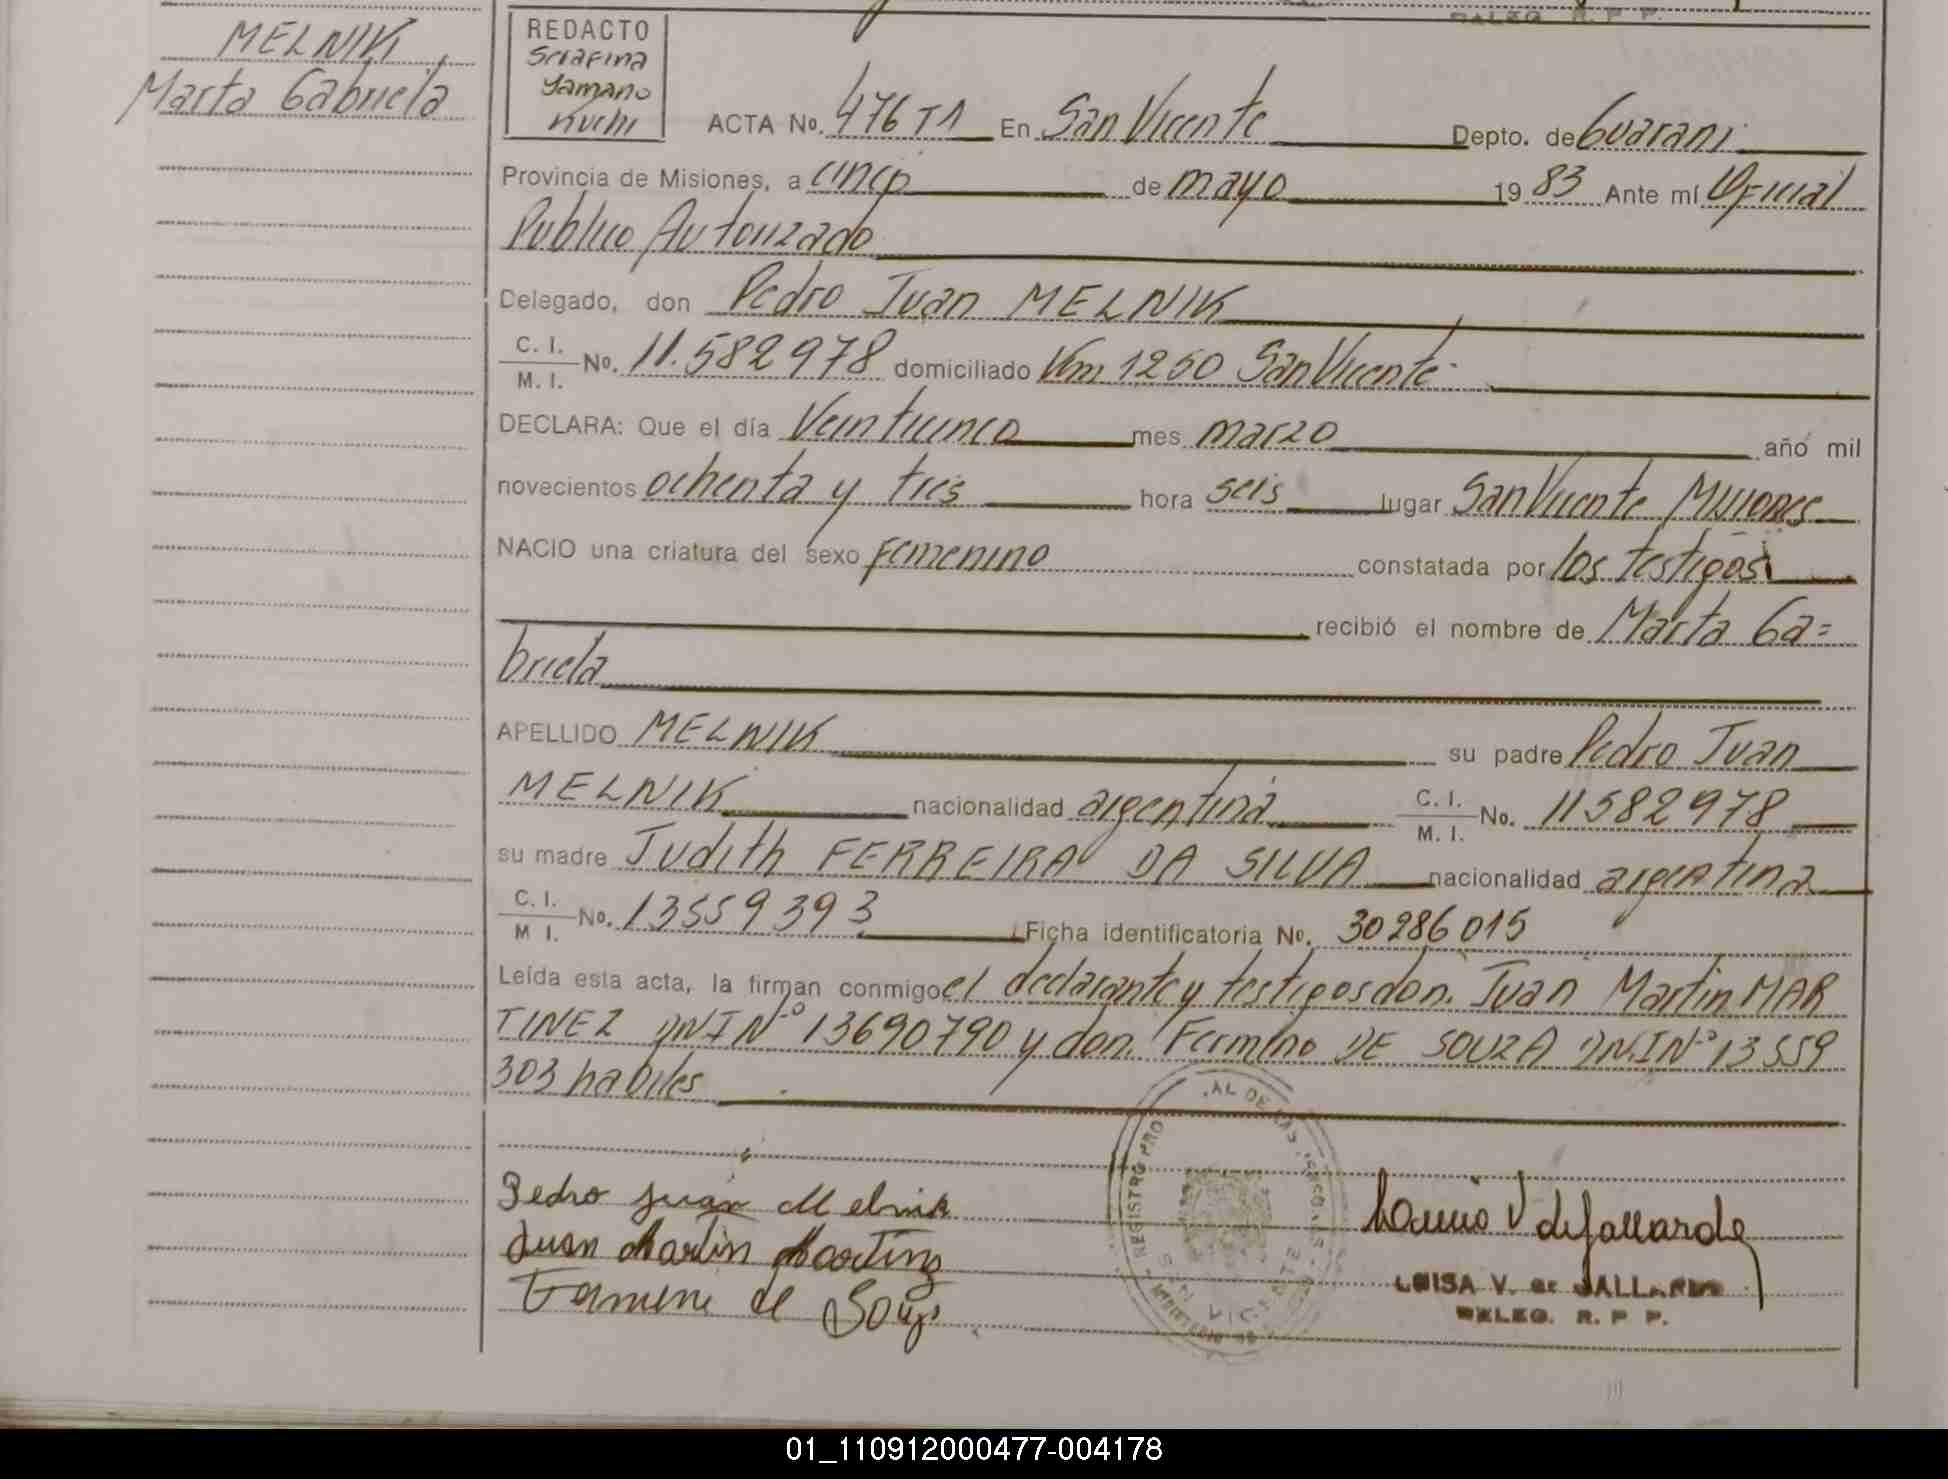 MELNIK
Marta Gabriela
REDACTO
Serafina
Yamano
Kuchi
DELEG. R. P. P.
ACTA No. 476 T1 En San Vicente Depto. de Guarani
Provincia de Misiones, a cinco de mayo 19 83 Ante mí Oficial
Publico Autorizado
Delegado, don Pedro Juan MELNIK
C. I. / M. I. No. 11.582978 domiciliado Km 1260 San Vicente
DECLARA: Que el día Veinticinco mes marzo año mil
novecientos ochenta y tres hora seis lugar San Vicente Misiones
NACIO una criatura del sexo Femenino constatada por los testigos
recibió el nombre de Marta Ga=
briela
APELLIDO MELNIK su padre Pedro Juan
MELNIK nacionalidad argentina C. I. / M. I. No. 11582978
su madre Judith FERREIRA DA SILVA nacionalidad argentina
C. I. / M I. No. 13559393 Ficha identificatoria No. 30286015
Leída esta acta, la firman conmigo el declarante y testigos don. Juan Martin MAR
TINEZ DNI Nº 13690790 y don. Fermino DE SOUZA DNI Nº 13559
303 habiles
Pedro Juan Melnik
Juan Martin
REGISTRO SAN VICENTE
LUISA V. de GALLARDO
DELEG. R. P P.
01_110912000477-004178